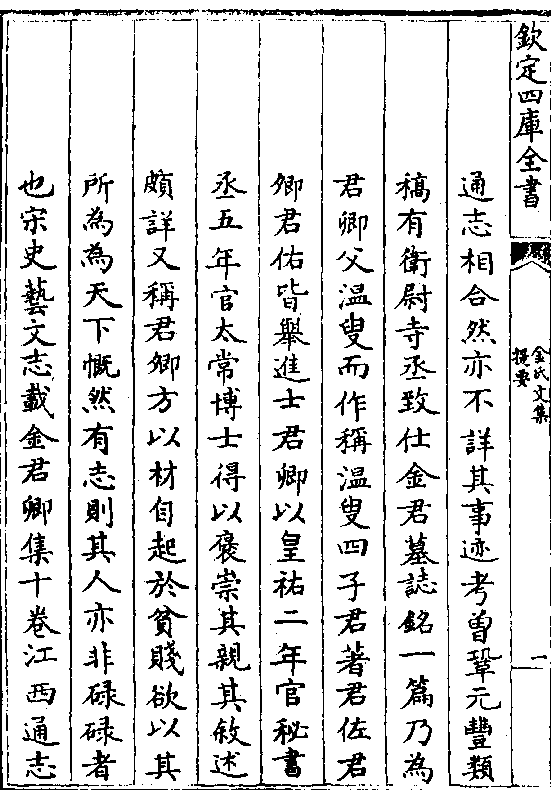 欽定四庫全書
金氏文集
提要
一
通志相合然亦不詳其事迹考曽鞏元豐類
稿有衛尉寺丞致仕金君墓誌銘一篇乃為
君卿父溫叟而作稱溫叟四子君著君佐君
卿君佑皆舉進士君卿以皇祐二年官秘書
丞五年官太常博士得以褒崇其親其敘述
頗詳又稱君卿方以材自起於貧賤欲以其
所為為天下慨然有志則其人亦非碌碌者
也宋史藝文志載金君卿集十卷江西通志